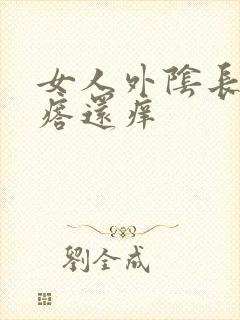 女人外陰長
痞還痒
劉全成